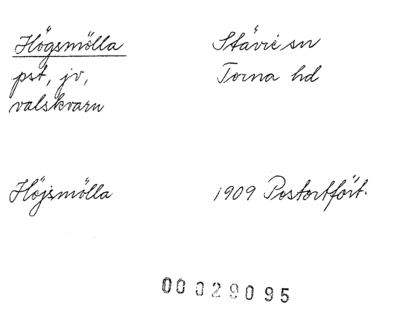 Högsmölla Stävie sn
pst, jv, Torna hd
valskvarn
Höjsmölla 1909 Postortfört.
00029095